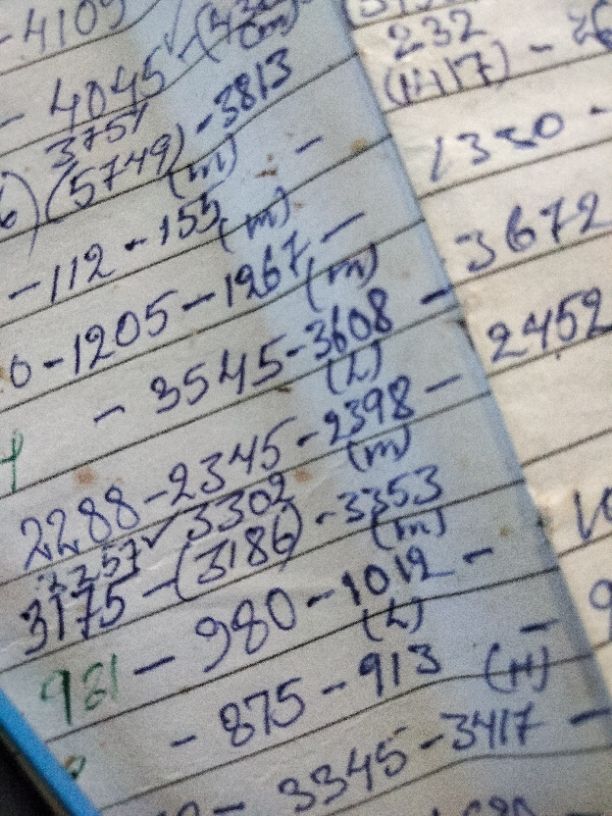 - 4109
- 4045 -
3751
(5749) - 3813
(m)
- 112 - 155 -
(m)
0 - 1205 - 1267 -
(m)
- 3545 - 3608 - 3672
(L)
2288 - 2345 - 2398 - 2452
(m)
3257 ✓ 3302
3175 - (3186) - 3353
(m)
981 - 980 - 1012 -
(L)
- 875 - 913 -
(H)
- 3345 - 3417 -
232
(1417) -
1330 -